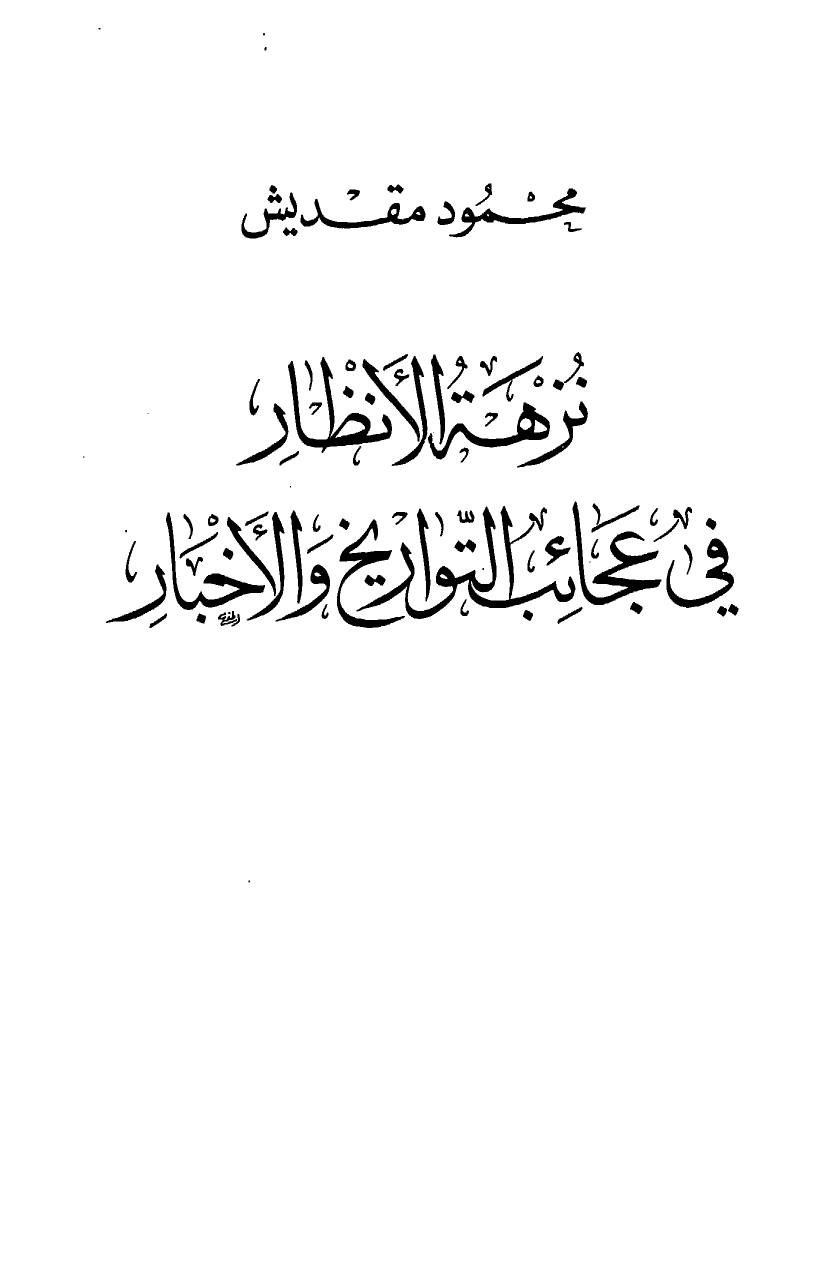 محمُود مقديش
نُزهَةُ الأَنظَارِ
في عَجَائِبِ التَّوارِيخِ وَالأَخبَارِ